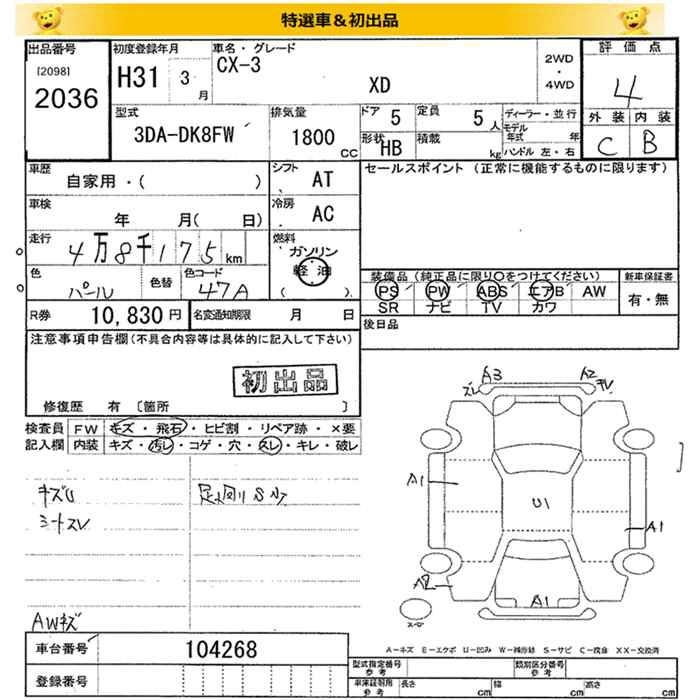 特選車&初出品
出品番号
[2098]
2036
初度登録年月
H31 3 月
車名・グレード
CX-3
XD
2WD
・
4WD
評価点
4
外装 内装
C B
型式
3DA-DK8FW
排気量
1800 CC
ドア 5
定員 5 人
形状 HB
積載 kg
ディーラー・並行
モデル年式 年
ハンドル 左・右
車歴
自家用・( )
シフト AT
セールスポイント (正常に機能するものに限ります)
車検
年 月( 日)
冷房 AC
走行
4万8千175 km
燃料
ガソリン
軽油
色
パール
色替
色コード
47A
装備品 (純正品に限り○をつけてください)
PS PW ABS エアB AW
SR ナビ TV カワ
新車保証書
有・無
R券 10,830円
名変通知期限 月 日
後日品
注意事項申告欄(不具合内容等は具体的に記入して下さい)
初出品
修復歴 有 〔箇所 〕
検査員 FW キズ・飛石・ヒビ割・リペア跡・×要
記入欄 内装 キズ・汚レ・コゲ・穴・スレ・キレ・破レ
キズU
シートスレ
足廻りSサビ
AWキズ
A3
ズレ
A2
A1
U1
A1
A2
A1
車台番号 104268
登録番号
A-キズ E-エクボ U-凹み W-補修跡 S-サビ C-腐食 XX-交換済
型式指定番号
参考
類別区分番号
参考
車庫証明用
参考
長さ cm 幅 cm 高さ cm